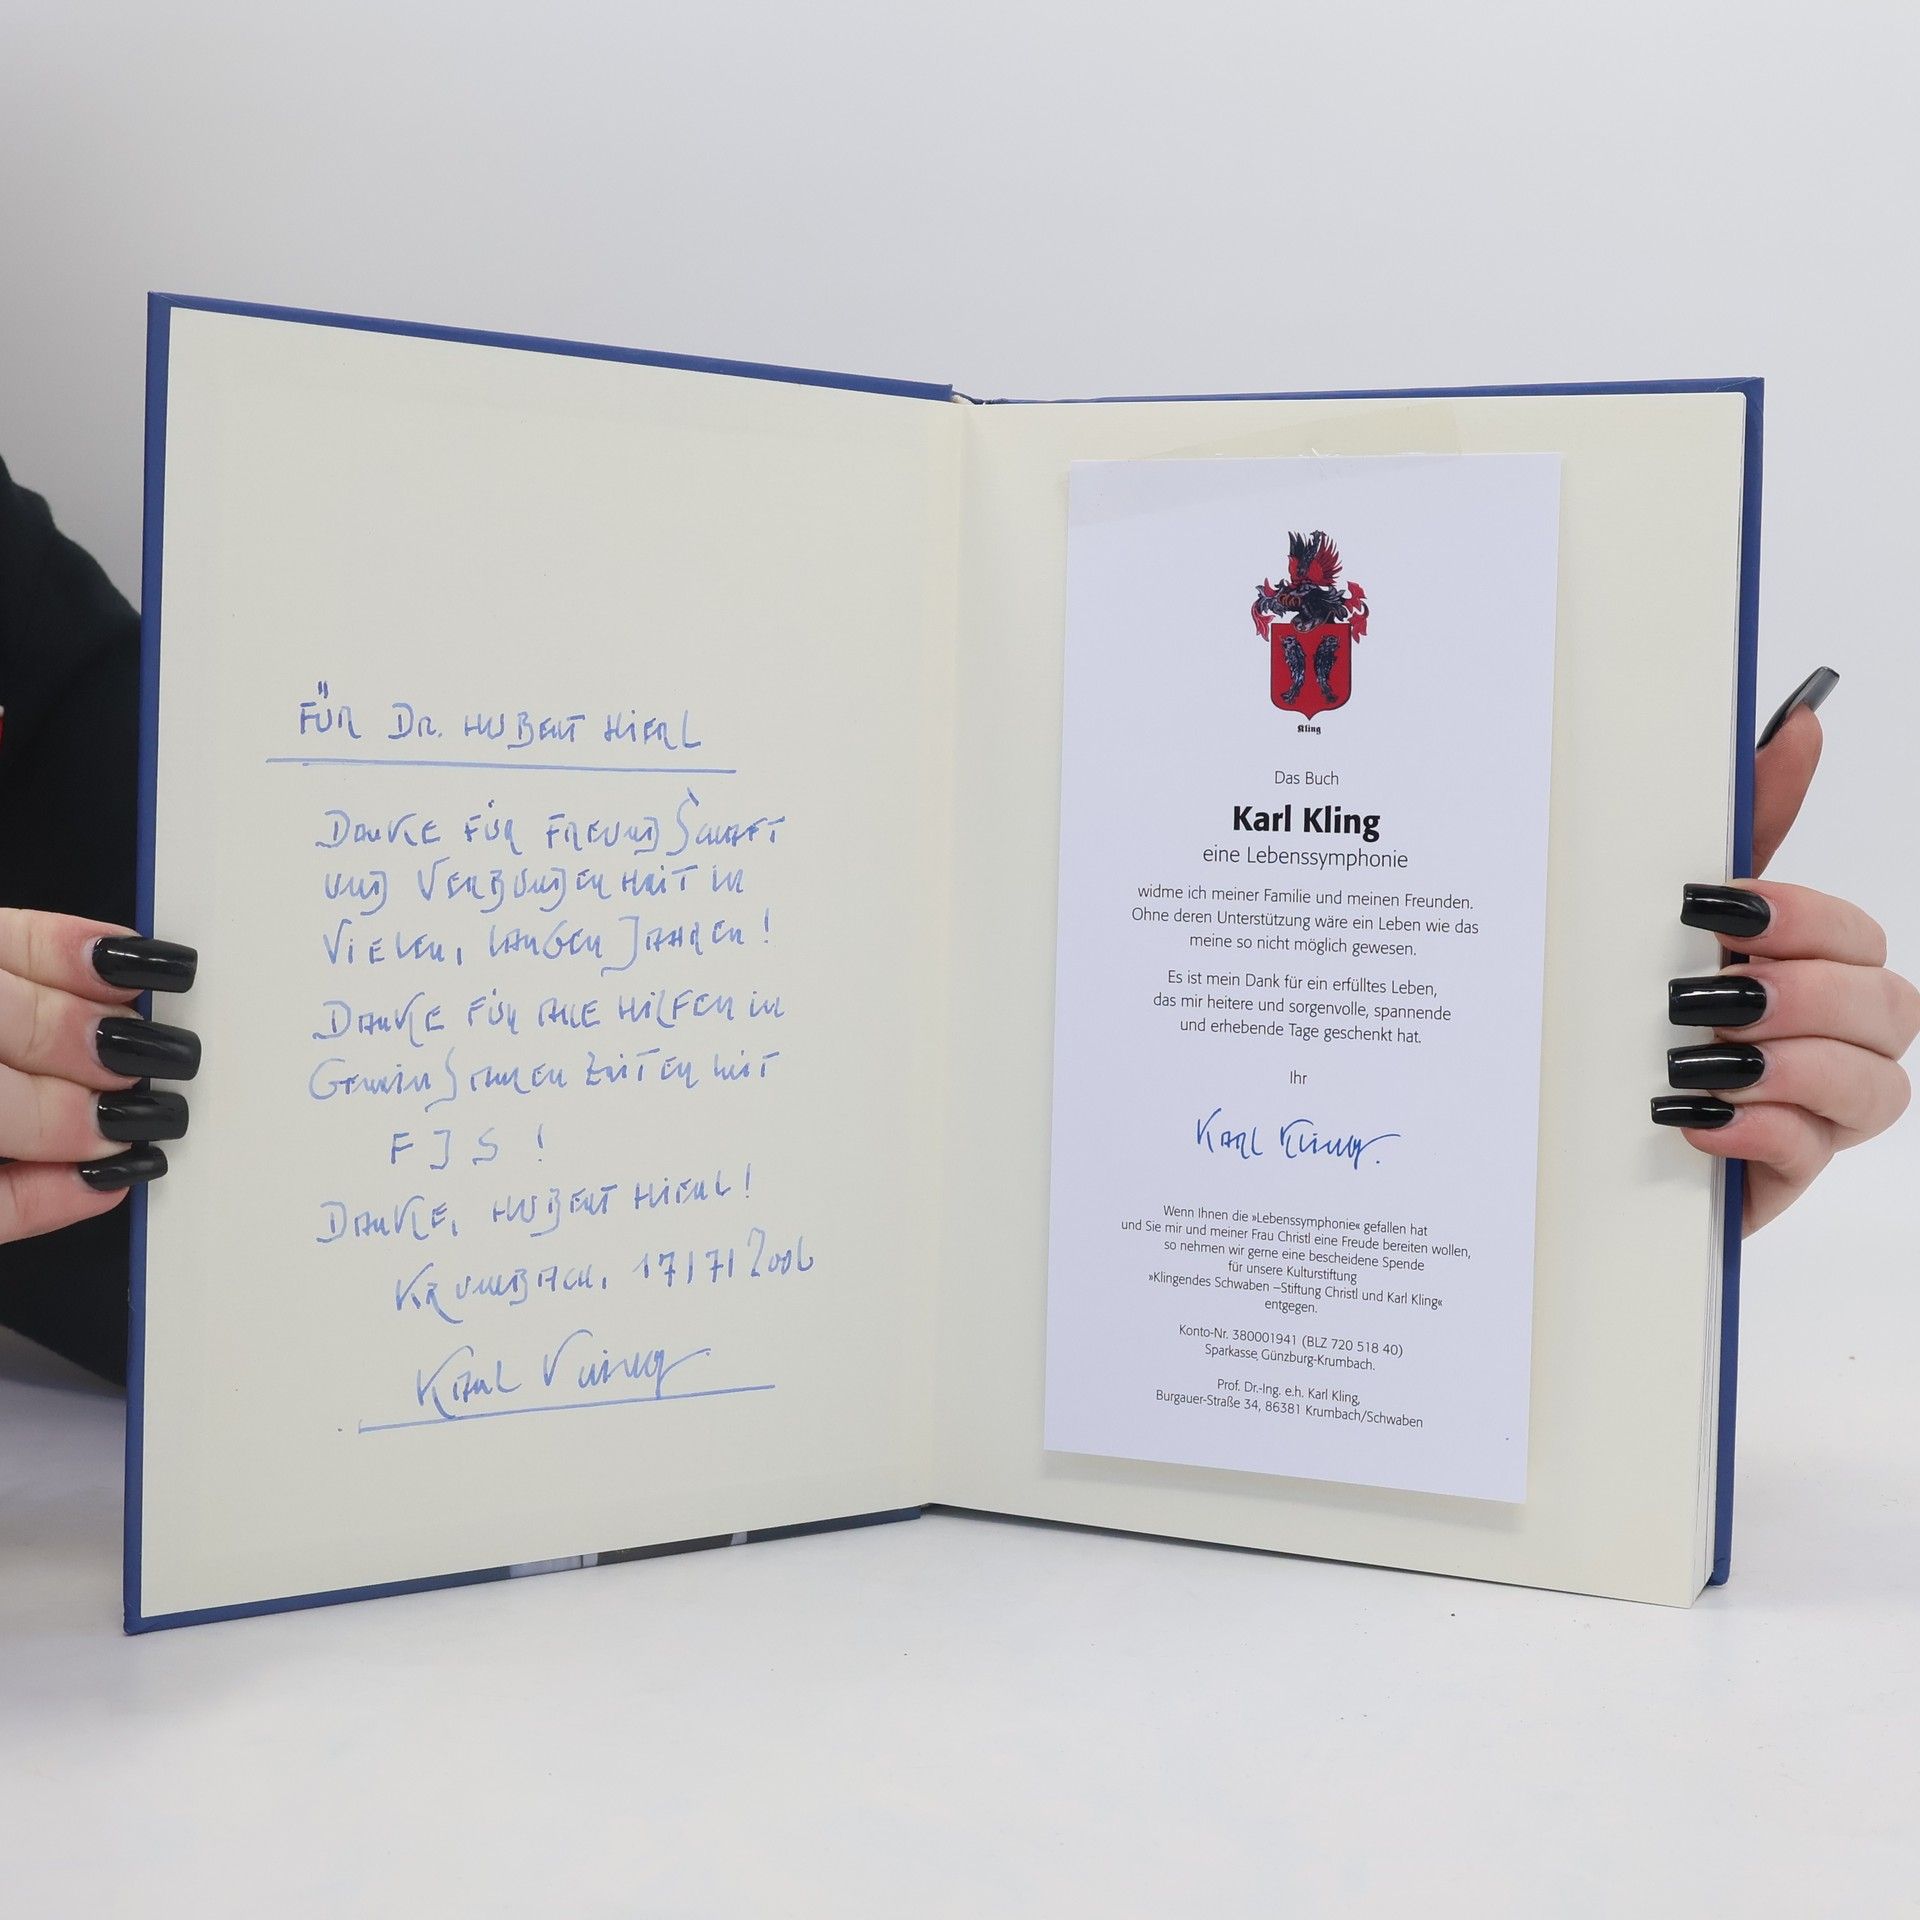 FÜR DR. HUBERT HIERL
DANKE FÜR FREUNDSCHAFT
UND VERBUNDENHEIT IN
VIELEN, LANGEN JAHREN!
DANKE FÜR ALLE HILFEN IN
GEMEINSAMEN ZEITEN MIT
FJS!
DANKE, HUBERT HIERL!
KRUMBACH, 17/7/2006
KARL KLING
Kling
Das Buch
Karl Kling
eine Lebenssymphonie
widme ich meiner Familie und meinen Freunden.
Ohne deren Unterstützung wäre ein Leben wie das
meine so nicht möglich gewesen.
Es ist mein Dank für ein erfülltes Leben,
das mir heitere und sorgenvolle, spannende
und erhebende Tage geschenkt hat.
Ihr
KARL KLING.
Wenn Ihnen die »Lebenssymphonie« gefallen hat
und Sie mir und meiner Frau Christl eine Freude bereiten wollen,
so nehmen wir gerne eine bescheidene Spende
für unsere Kulturstiftung
»Klingendes Schwaben –Stiftung Christl und Karl Kling«
entgegen.
Konto-Nr. 380001941 (BLZ 720 518 40)
Sparkasse, Günzburg-Krumbach.
Prof. Dr.-Ing. e.h. Karl Kling,
Burgauer-Straße 34, 86381 Krumbach/Schwaben